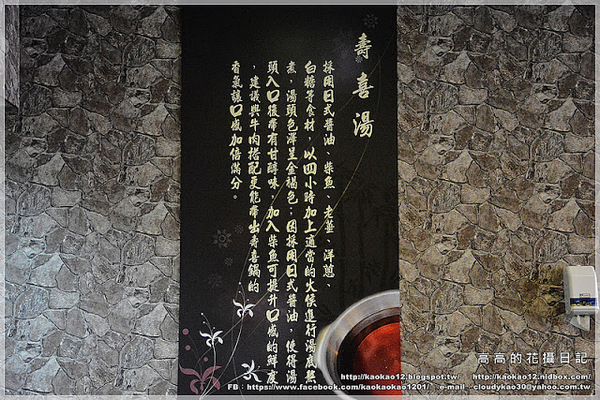 壽喜湯
採用日式醬油、柴魚、老薑、洋蔥、
白糖等食材，以四小時加上適當的火侯進行湯底熬
煮，湯頭色澤呈金褐色；因採用日式醬油，使得湯
頭入口後帶有甘醇味，加入柴魚可提升口感的鮮度
，建議與牛肉搭配更能帶出壽喜鍋的
香氣讓口感加倍滿分。
高高的花攝日記
http://kaokao12.blogspot.tw/ http://kaokao12.nidbox.com/
FB：https://www.facebook.com/kaokaokao1201/ e-mail：cloudykao30@yahoo.com.tw